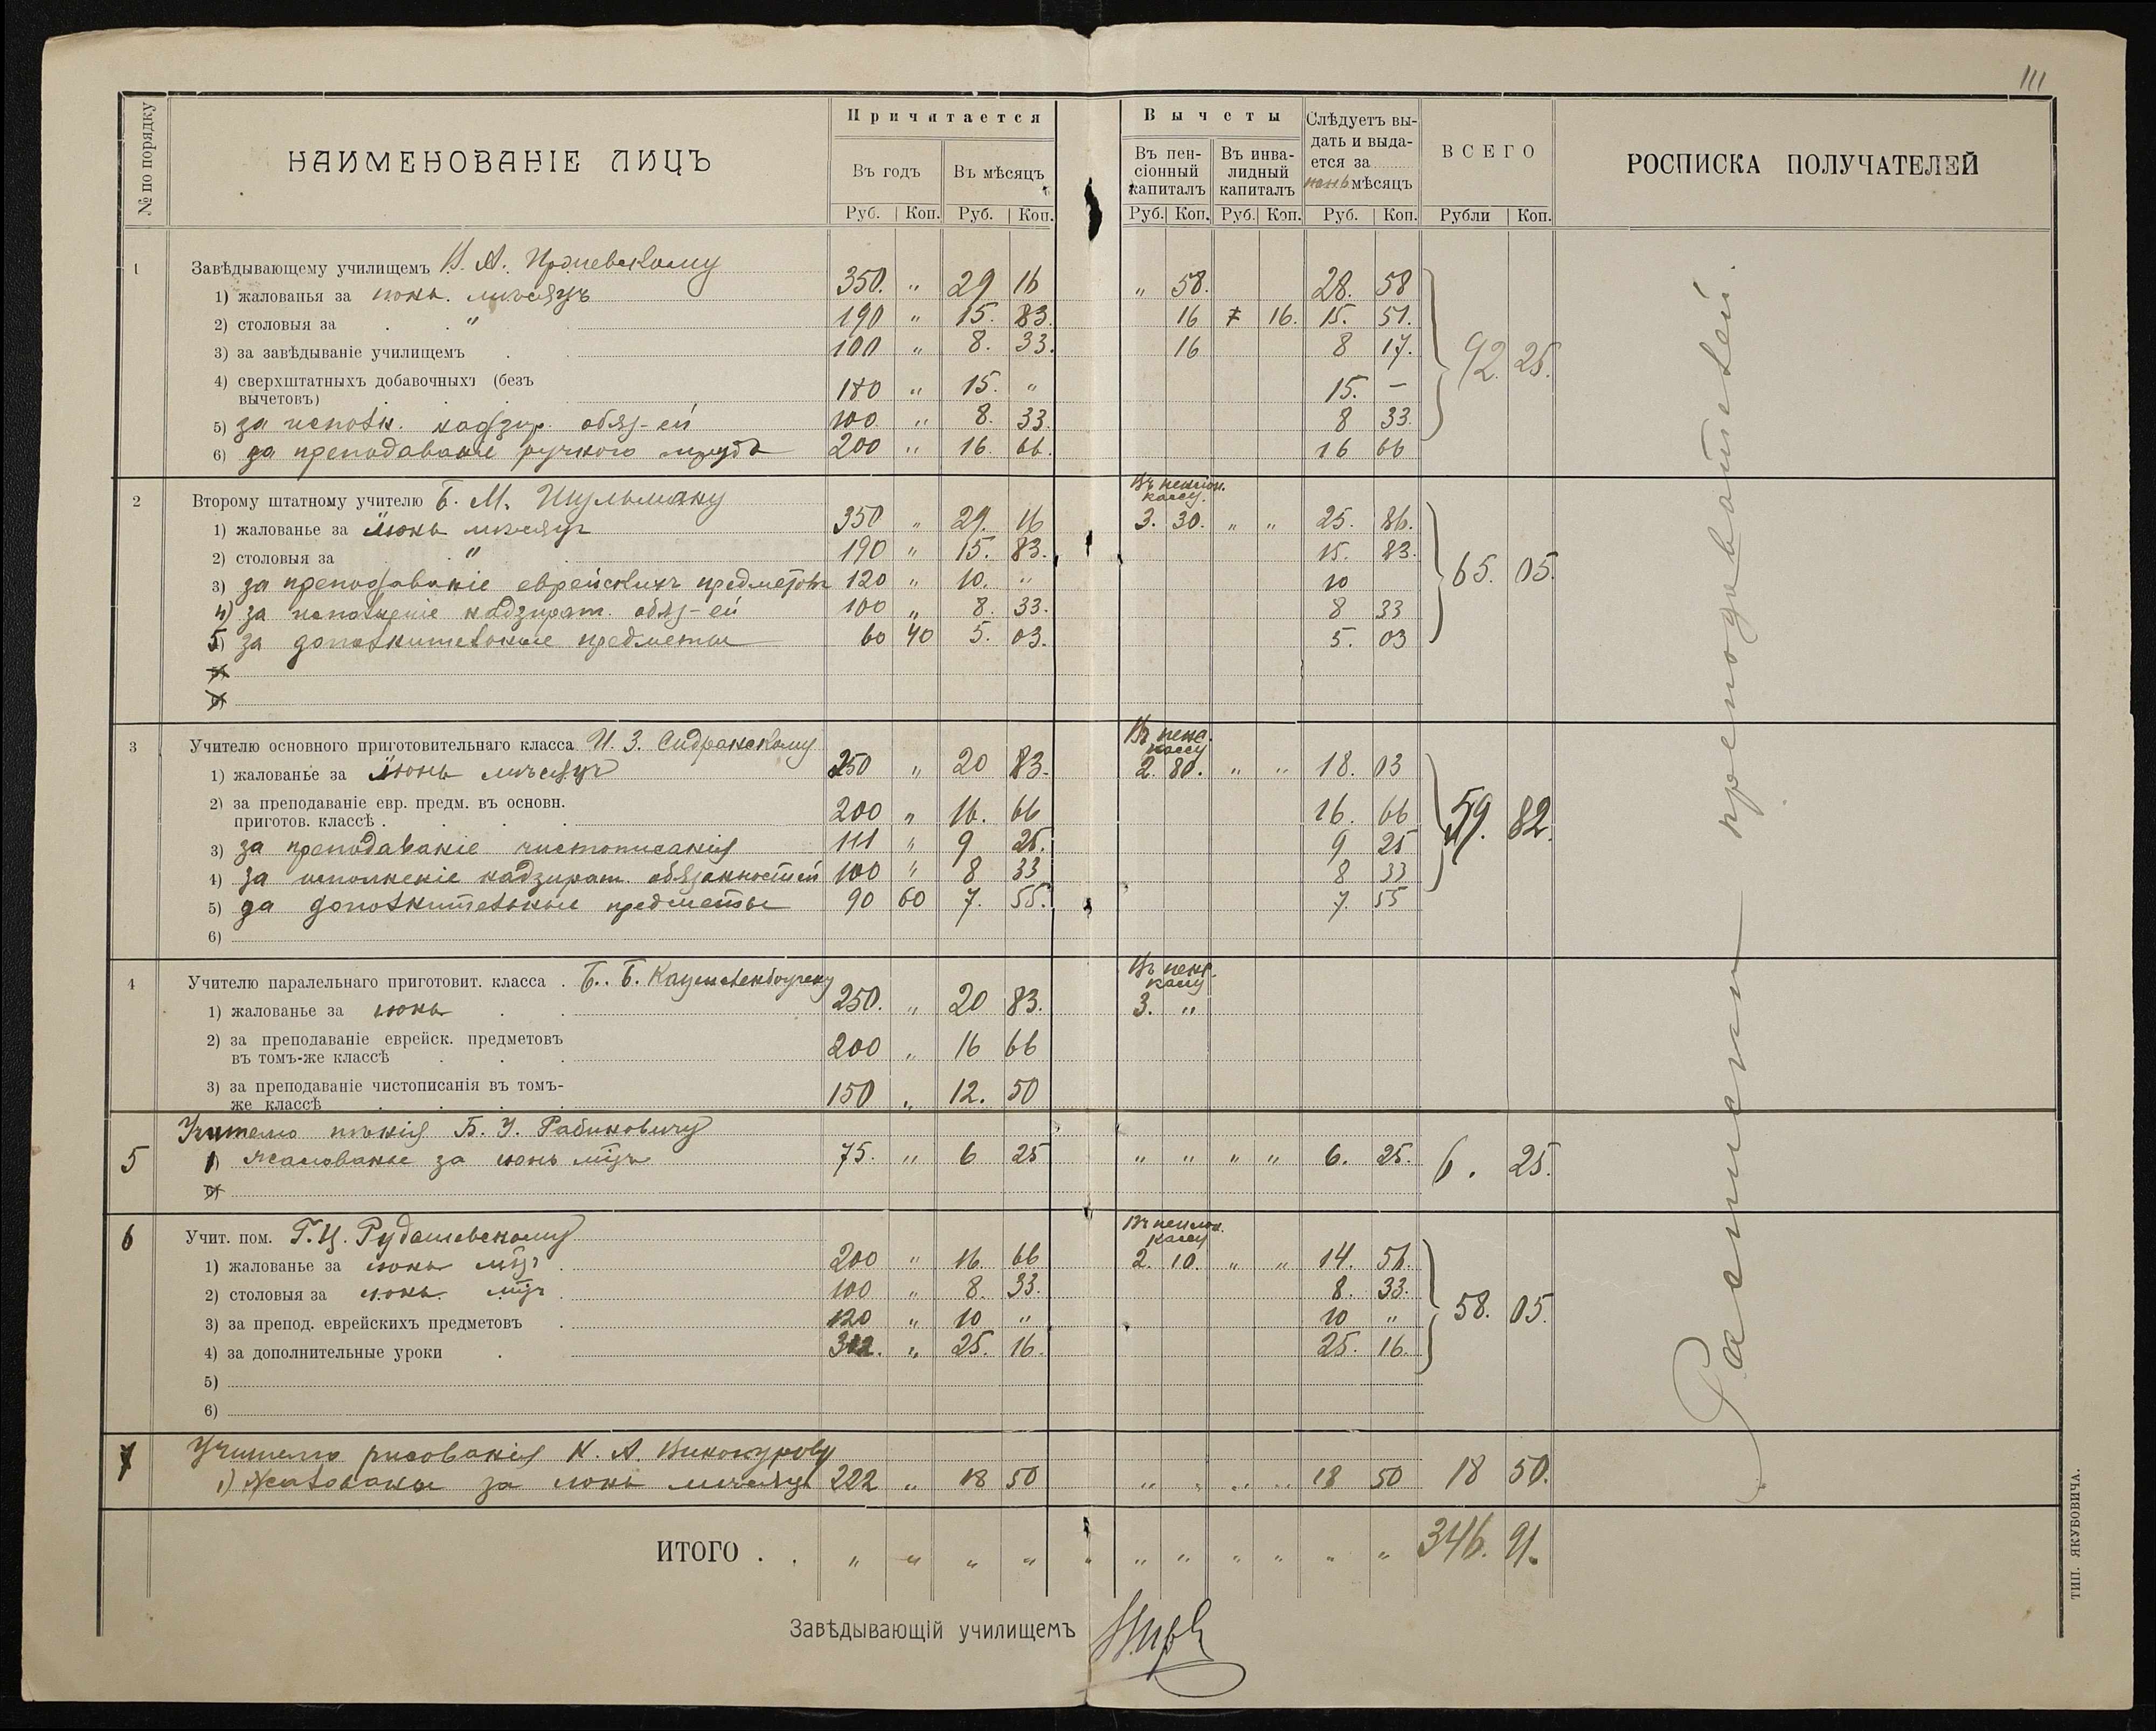 111
№ по порядку
НАИМЕНОВАНІЕ ЛИЦЪ
Причитается
Въ годъ
Въ мѣсяцъ
Руб. Коп. Руб. Коп.
Вычеты
Въ пен-
сіонный
капиталъ
Въ инва-
лидный
капиталъ
Слѣдуетъ вы-
дать и выда-
ется за
іюнь мѣсяцъ
ВСЕГО
РОСПИСКА ПОЛУЧАТЕЛЕЙ
Руб. Коп. Руб. Коп. Руб. Коп. Рубли Коп.
1 Завѣдывающему училищемъ А.
1) жалованья за іюнь мѣсяцъ 350. „ 29 16 „ 58. 28. 58
2) столовыя за „ 190 „ 15. 83. 16 16. 15. 51.
3) за завѣдываніе училищемъ 100 „ 8. 33. 16 8 17. 92. 25.
4) сверхштатныхъ добавочныхъ (безъ
вычетовъ) 180 „ 15. „ 15. —
5) за исполн. надзир. обяз-ей 100 „ 8. 33. 8 33.
6) за преподаваніе ручного труда 200 „ 16. 66. 16 66
2 Второму штатному учителю Б. М. Шульману Въ пенсіон.
кассу.
1) жалованье за Іюнь мѣсяцъ 350 „ 29. 16 3. 30. „ „ 25. 86.
2) столовыя за „ 190 „ 15. 83. 15. 83.
3) за преподаваніе еврейскихъ предметовъ 120 „ 10. „ 10 65. 05.
4) за исполненіе надзират. обяз-ей 100 „ 8. 33. 8 33
5) за дополнительные предметы 60 40 5. 03. 5. 03
3 Учителю основного приготовительнаго класса И. З. Сидранскому Въ пенс.
кассу
1) жалованье за Іюнь мѣсяцъ 250 „ 20 83. 2. 80. „ „ 18. 03
2) за преподаваніе евр. предм. въ основн.
приготов. классѣ 200 „ 16. 66 16. 66 59. 82.
3) за преподаваніе чистописанія 111 „ 9 25. 9 25
4) за исполненіе надзират. обязанностей 100 „ 8 33 8 33
5) за дополнительные предметы 90 60 7. 55. 7. 55
6)
4 Учителю паралельнаго приготовит. класса Б. Б. Въ пенс.
кассу
1) жалованье за іюнь 250. „ 20 83. 3. „
2) за преподаваніе еврейск. предметовъ
въ томъ-же классѣ 200 „ 16 66
3) за преподаваніе чистописанія въ томъ-
же классѣ 150 „ 12. 50
Учителю пѣнія Б. У. Рабиновичу
5 1) Жалованье за іюнь мцъ 75. „ 6 25 „ „ „ „ 6. 25. 6. 25.
6 Учит. пом. Г. Ц. Рудашевскому Въ пенсіон.
кассу
1) жалованье за іюнь мцъ 200 „ 16. 66 2. 10. „ „ 14. 56.
2) столовыя за іюнь мцъ 100 „ 8. 33. 8. 33.
3) за препод. еврейскихъ предметовъ 120 „ 10 „ 10 „ 58. 05.
4) за дополнительные уроки 302. „ 25. 16. 25. 16.
5)
6)
7 Учителю рисованія К. А. Винокурову
1) Жалованье за іюнь мѣсяцъ 222 „ 18 50 „ „ „ „ 18 50 18 50.
ИТОГО . . „ „ „ „ „ „ „ „ „ „ 346. 91.
Завѣдывающій училищемъ
Расписки преподавателей.
ТИП. ЯКУБОВИЧА.